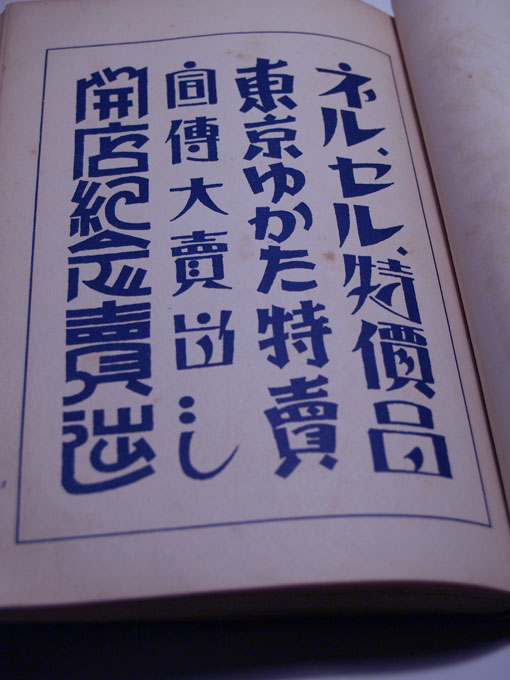 ネル、セル、特價品
東京ゆかた特賣
宣傳大賣出し
開店紀念賣出し